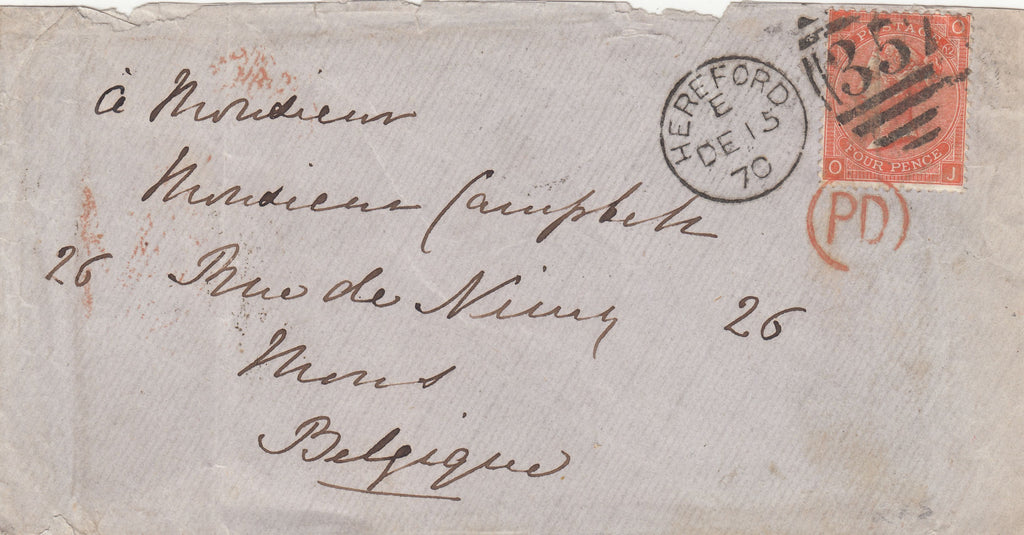 à Monsieur
Monsieur Campbell
26 Rue de Nimy 26
Mons
Belgique
HEREFORD
E
DE 15
70
357
POSTAGE
O
FOUR PENCE
O J
PD